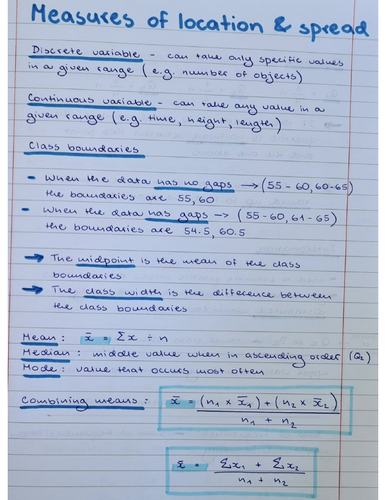 Measures of location & spread
Discrete variable - can take only specific values
in a given range (e.g. number of objects)
Continuous variable - can take any value in a
given range (e.g. time, height, length)
Class boundaries
- When the data has no gaps → (55 - 60, 60-65)
the boundaries are 55, 60
- When the data has gaps → (55-60, 61-65)
the boundaries are 54.5, 60.5
→ The midpoint is the mean of the class
boundaries
→ The class width is the difference between
the class boundaries
Mean: x̄ = Σx ÷ n
Median: middle value when in ascending order (Q₂)
Mode: value that occurs most often
Combining means: x̄ = (n₁ × x̄₁) + (n₂ × x̄₂)
n₁ + n₂
x̄ = Σx₁ + Σx₂
n₁ + n₂